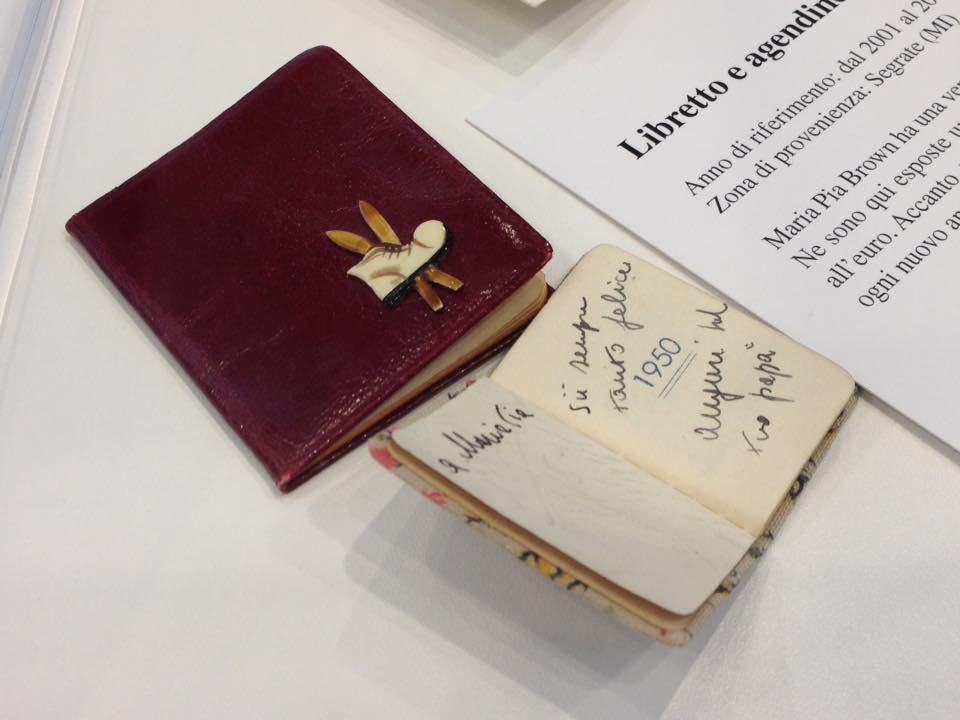 Libretto e agendine
Anno di riferimento: dal 2001 al 20
Zona di provenienza: Segrate (MI)
Maria Pia Brown ha una ver
Ne sono qui esposte u
all'euro. Accanto
ogni nuovo an
a Maria Pia
sii sempre
tanto felice
1950
auguri dal
tuo papà